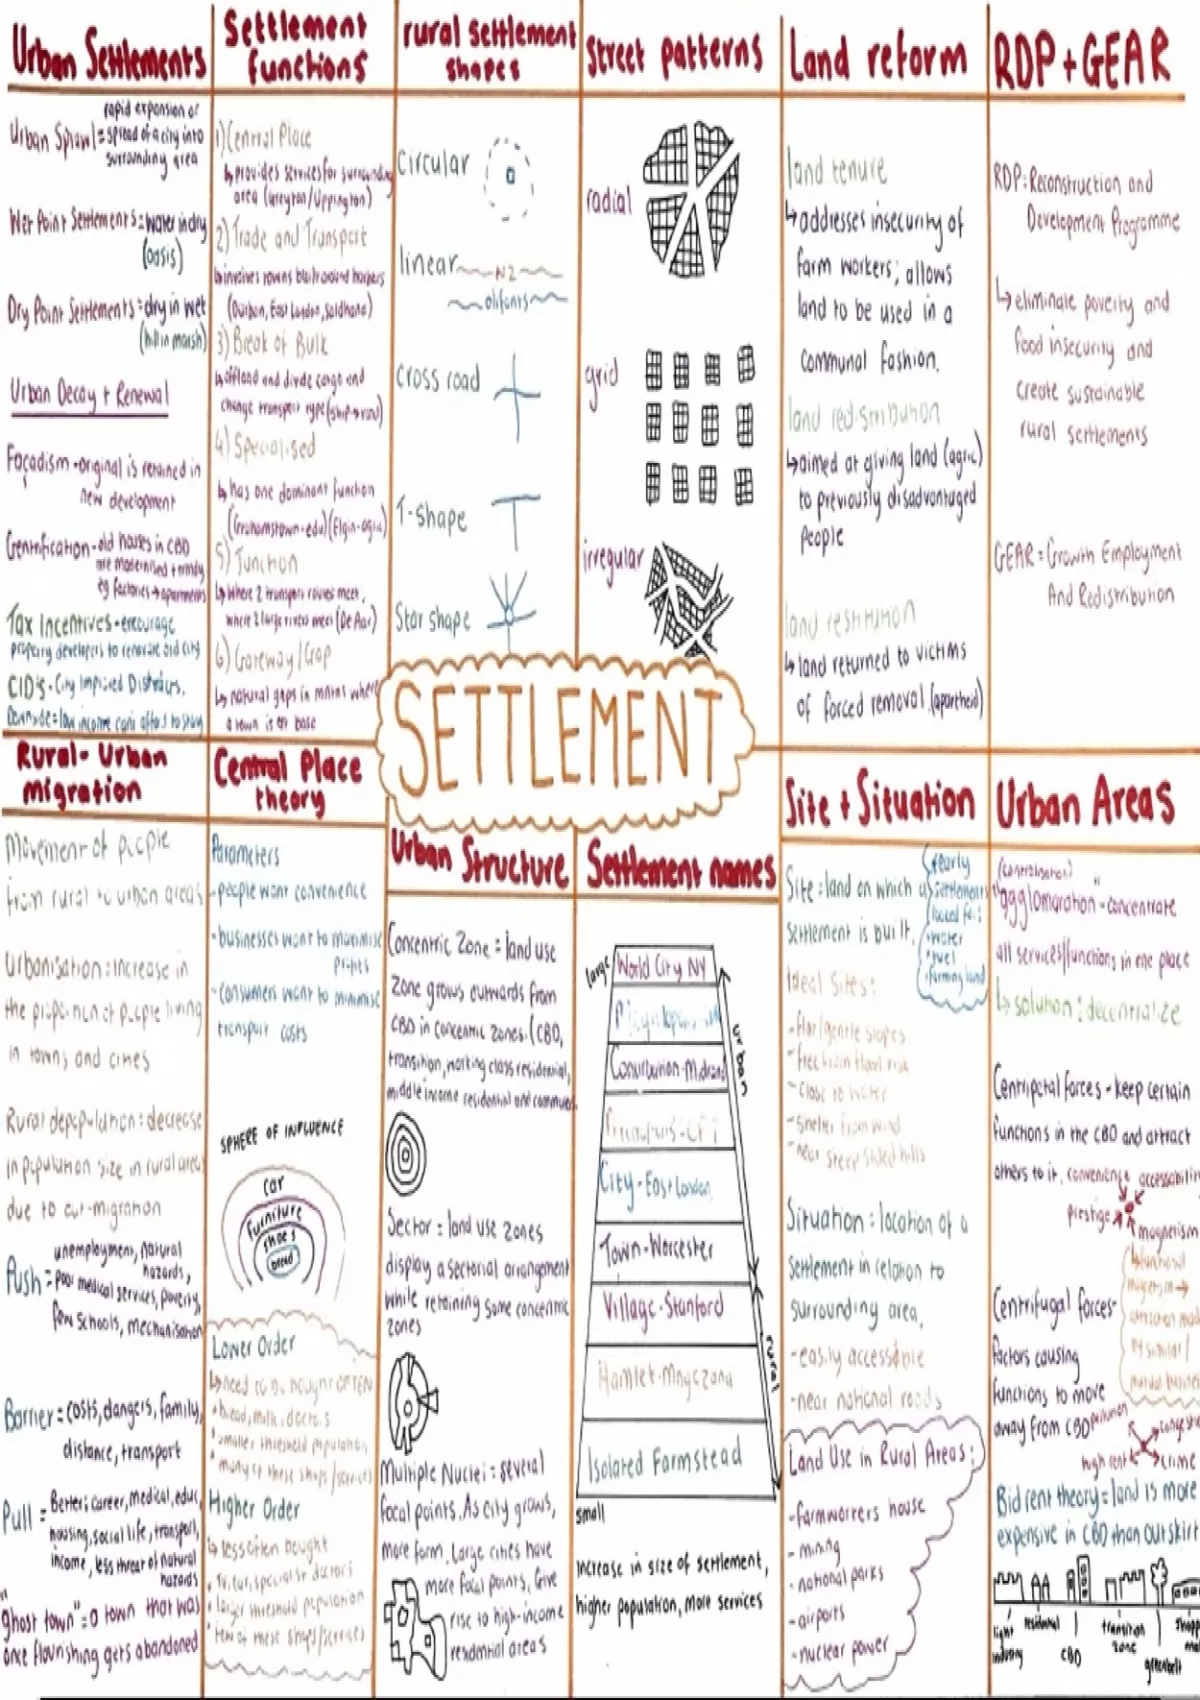 Urban Settlements
rapid expansion or
Urban Sprawl = spread of a city into
surrounding area
Wet Point Settlements = water in dry
(oasis)
Dry Point Settlements = dry in wet
(hill in marsh)
Urban Decay + Renewal
Façadism - original is retained in
new development
Gentrification - old houses in CBD
are modernised + trendy
eg factories → apartments
Tax Incentives - encourage
property developers to renovate old city
CID's - City Improved Districts.
Downside = low income can't afford to stay
Settlement
functions
1) Central Place
↳ provides services for surrounding
area (Greyton/Uppington)
2) Trade and Transport
↳ involves towns built around harbors
(Durban, East London, Saldhana)
3) Break of Bulk
↳ offload and divide cargo and
change transport type (ship → road)
4) Specialised
↳ has one dominant function
(Grahamstown-edu) (Elgin-agric)
5) Junction
↳ Where 2 transport routes meet,
where 2 large rivers meet (De Aar)
6) Gateway/Gap
↳ natural gaps in mntns where
a town is at base
rural settlement
shapes
circular
linear
N2
olifants
cross road
T-shape
Star shape
Street patterns
radial
grid
irregular
Land reform
land tenure
↳ addresses insecurity of
farm workers; allows
land to be used in a
communal fashion.
land redistribution
↳ aimed at giving land (agric)
to previously disadvantaged
people
land restitution
↳ land returned to victims
of forced removal (apartheid)
RDP + GEAR
RDP: Reconstruction and
Development Programme
↳ eliminate poverty and
food insecurity and
create sustainable
rural settlements
GEAR = Growth Employment
And Redistribution
SETTLEMENT
Rural-Urban
migration
Movement of people
from rural to urban areas
Urbanisation: Increase in
the proportion of people living
in towns and cities
Rural depopulation: decrease
in population size in rural areas
due to out-migration
Push = unemployment, natural
hazards,
poor medical services, poverty,
few schools, mechanisation
Barrier = costs, dangers, family,
distance, transport
Pull = Better; career, medical, educ,
housing, social life, transport,
income, less threat of natural
hazards
"ghost town" = a town that was
once flourishing gets abandoned
Central Place
theory
Parameters
- people want convenience
- businesses want to maximise
profits
- consumers want to minimise
transport costs
SPHERE OF INFLUENCE
car
furniture
shoes
bread
Lower Order
↳ need to be bought often
* bread, milk, doctors
* smaller threshold population
* many of these shops/services
Higher Order
↳ less often bought
* TV, car, specialist doctors
* larger threshold population
* few of these shops/services
Urban Structure
Concentric Zone = land use
zone grows outwards from
CBD in concentric zones. (CBD,
transition, working class residential,
middle income residential and commuter
Sector = land use zones
display a sectorial arrangement
while retaining some concentric
zones
Multiple Nuclei = several
focal points. As city grows,
more form. Large cities have
more focal points. Give
rise to high-income
residential areas
Settlement names
large
World City NY
Conurbation - Midrand
City - East London
Town - Worcester
Village - Stanford
Hamlet - Mnyczana
Isolated Farmstead
urban
rural
small
increase in size of settlement,
higher population, more services
Site + Situation
Site: land on which a
settlement is built.
early
settlements
located for:
- water
- fuel
- farming land
Ideal Sites:
- flat/gentle slopes
- free from flood risk
- close to water
- shelter from wind
- near steep sided hills
Situation: location of a
settlement in relation to
surrounding area.
- easily accessible
- near national roads
Land Use in Rural Areas:
- farmworkers house
- mining
- national parks
- airports
- nuclear power
Urban Areas
(centralisation)
"agglomoration" - concentrate
all services/functions in one place
↳ solution: decentralize
Centripetal forces - keep certain
functions in the CBD and attract
others to it. convenience accessability
prestige
magnetism
functional
magnetism →
attraction made
by similar/
mutual business
Centrifugal forces -
factors causing
functions to move
away from CBD
pollution
congestion
high rent
crime
Bid rent theory = land is more
expensive in CBD than outskirt
light
industry
residential
CBD
transition
zone
greenbelt